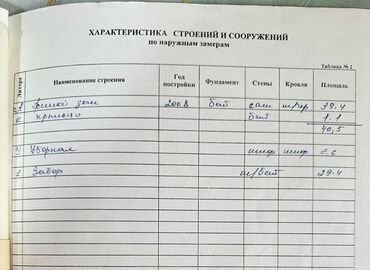 ХАРАКТЕРИСТИКА СТРОЕНИЙ И СООРУЖЕНИЙ
по наружным замерам
Таблица № 2
Литера Наименование строения Год постройки Фундамент Стены Кровля Площадь
Жилой дом 2008 бет 39.4
крыльцо бет. 1.1
40,5
Уборная шиф шиф
Забор м/бет 29.4